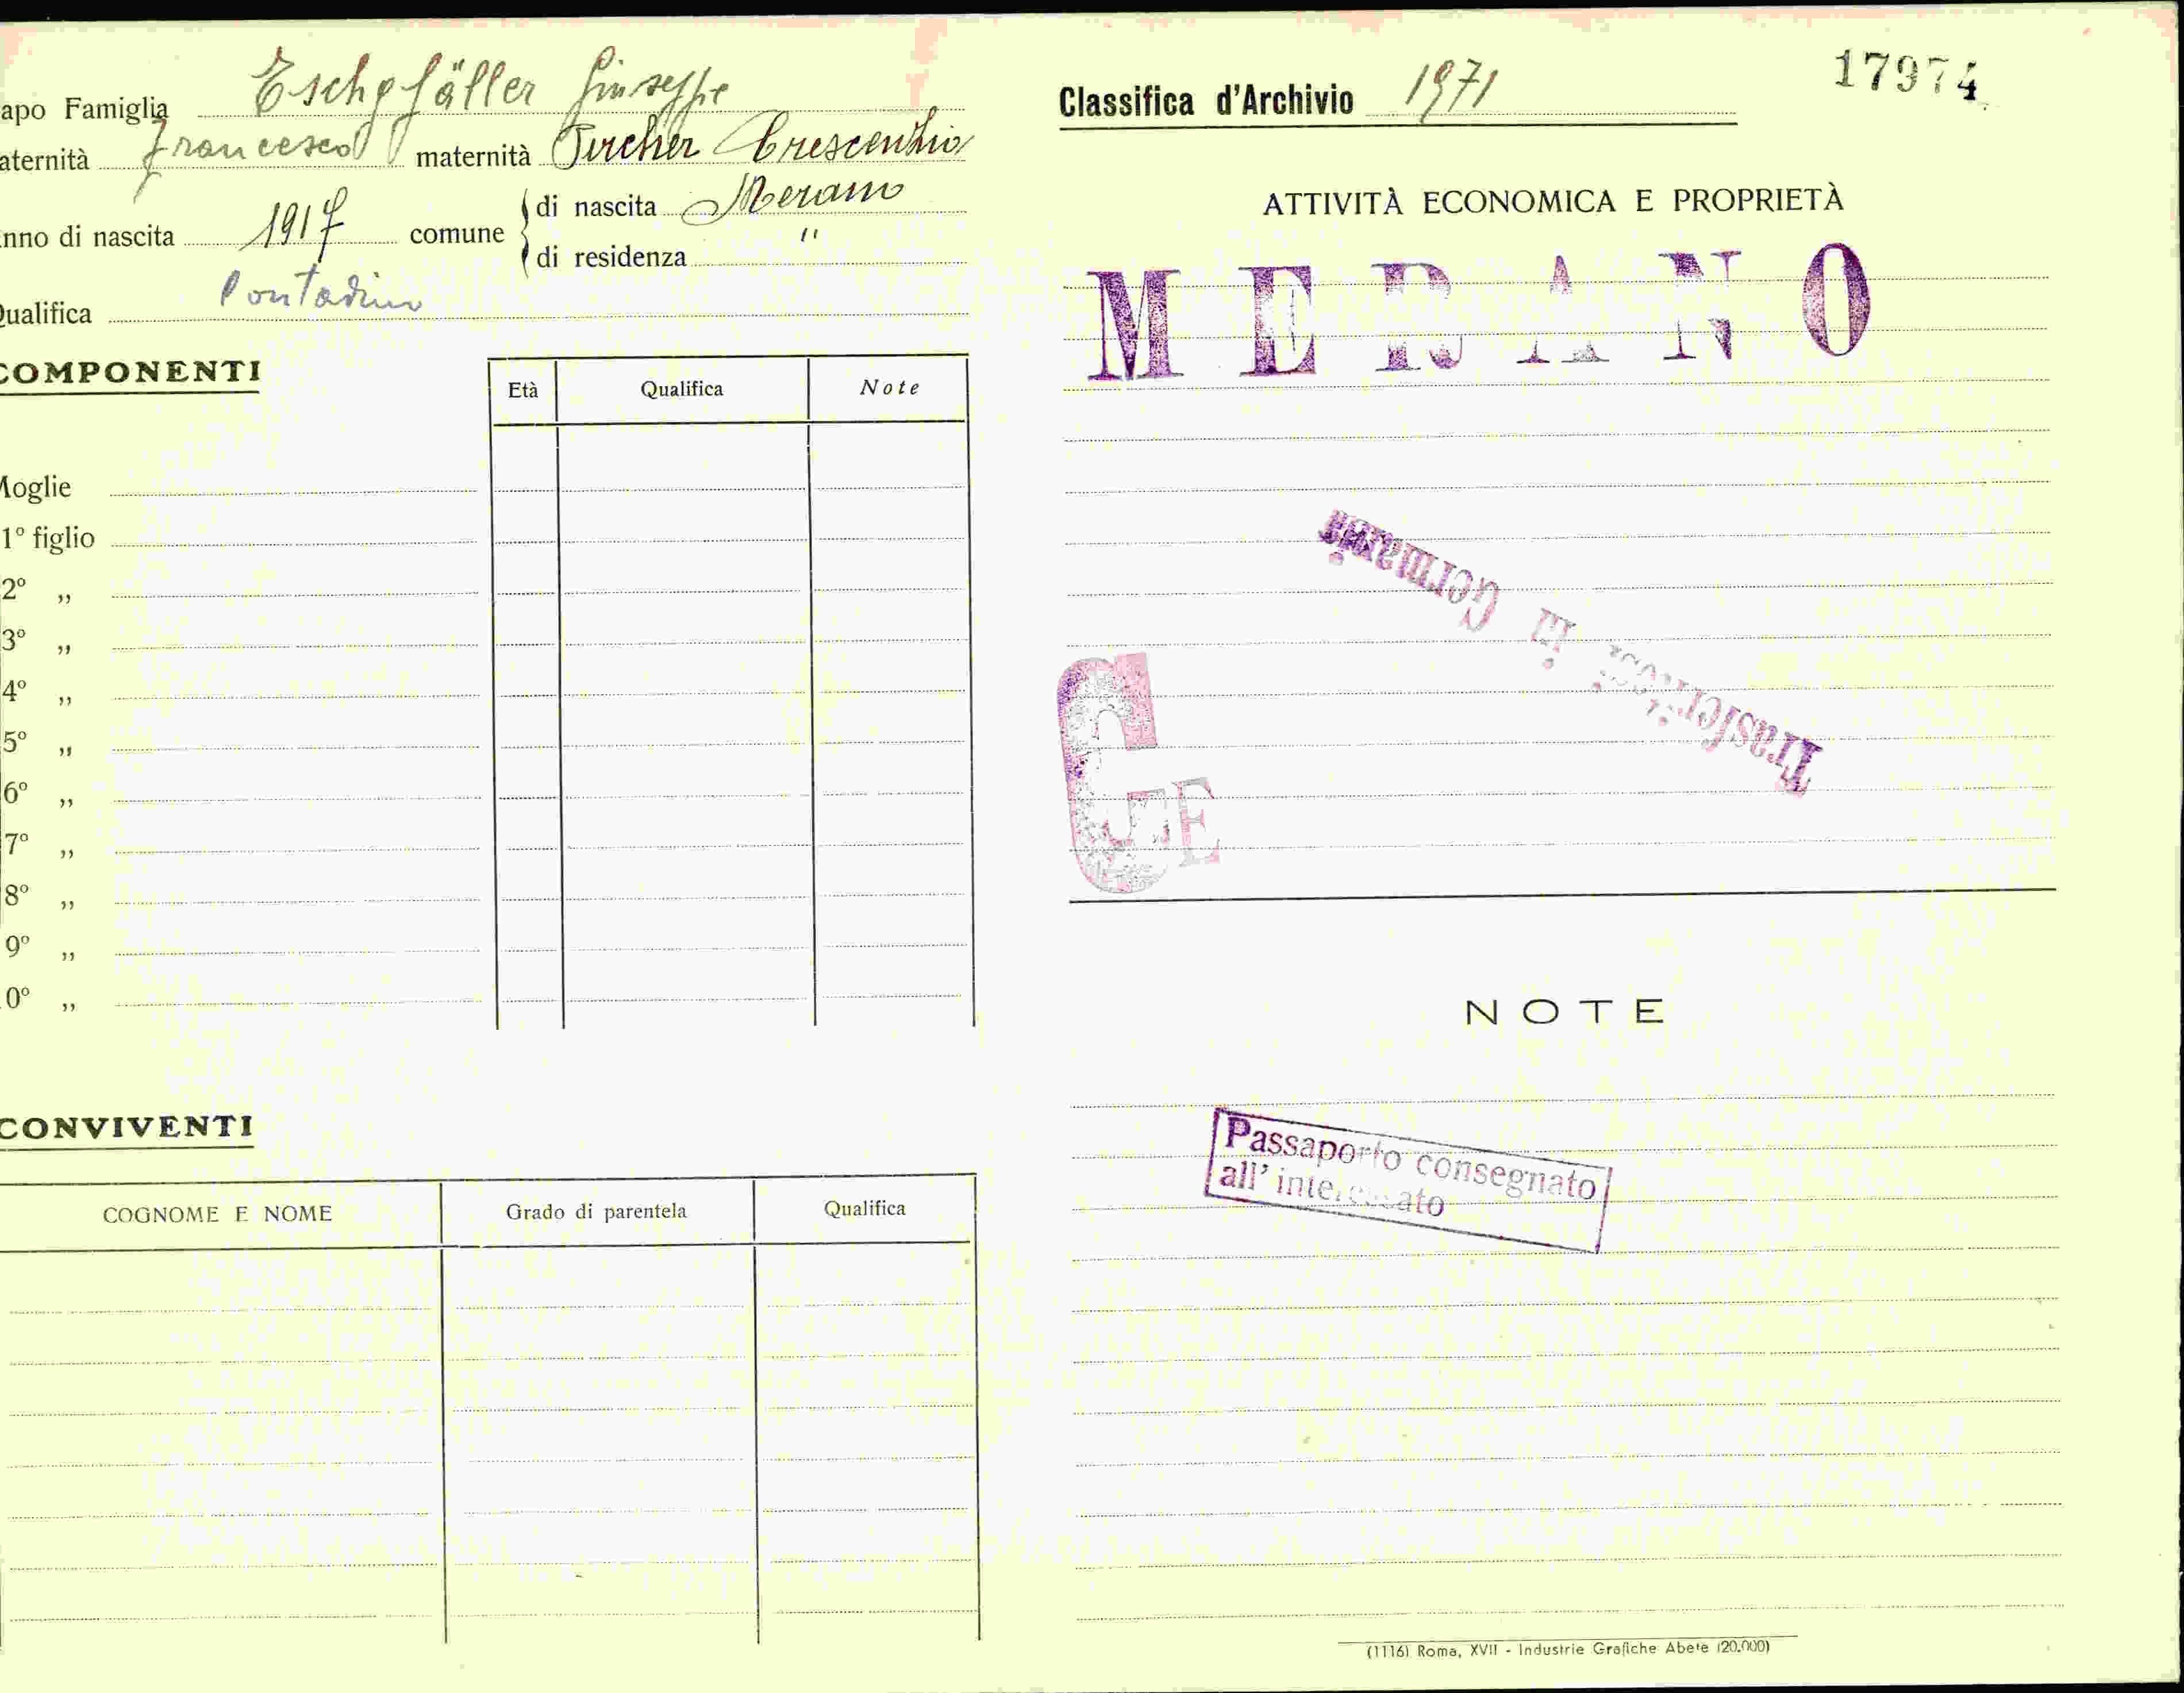 apo Famiglia Eschgfäller Giuseppe
aternità Francesco maternità Pircher Crescenzia
nno di nascita 1917 comune di nascita Merano
di residenza "
Qualifica Contadino
COMPONENTI
Età Qualifica Note
Moglie
1º figlio
2º „
3º „
4º „
5º „
6º „
7º „
8º „
9º „
0º „
CONVIVENTI
COGNOME E NOME Grado di parentela Qualifica
Classifica d'Archivio 1971
17974
ATTIVITÀ ECONOMICA E PROPRIETÀ
MERANO
in Germania
G E
NOTE
Passaporto consegnato
all'interessato
(1116) Roma, XVII - Industrie Grafiche Abete (20.000)